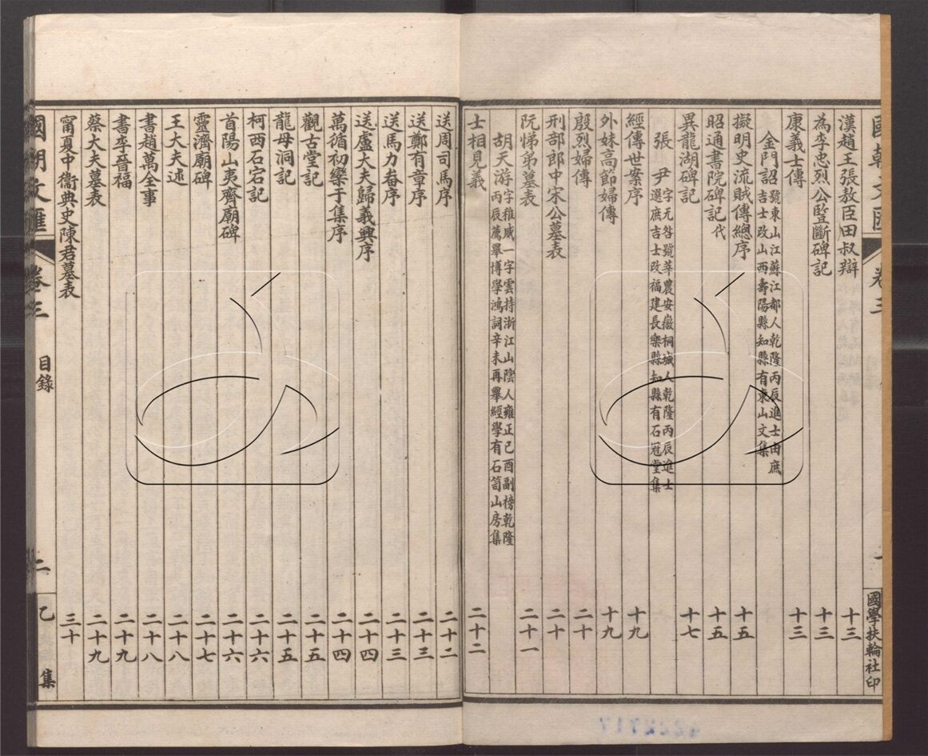 國朝文匯
卷三
國學扶輪社印
漢趙王張敖臣田叔辯 十三
為李忠烈公監斷碑記 十三
康義士傳 十三
金門詔 號東山江蘇江都人乾隆丙辰進士由庶
吉士改山西壽陽縣知縣有東山文集
擬明史流賊傳總序 十五
昭通書院碑記代 十五
異龍湖碑記 十七
張尹 字无咎號莘農安徽桐城人乾隆丙辰進士
選庶吉士改福建長樂縣知縣有石冠堂集
經傳世案序 十九
外妹高節婦傳 十九
殷烈婦傳 二十
刑部郎中宋公墓表 二十
阮悌弟墓表 二十一
胡天游 字稚威一字雲持浙江山陰人雍正己酉副榜乾隆
丙辰薦舉博學鴻詞辛未再舉經學有石笥山房集
士相見義 二十二
送周司馬序 二十二
送鄭有章序 二十三
送馬力畚序 二十三
送盧大夫歸義興序 二十四
萬循初欒于集序 二十四
觀古堂記 二十五
龍母洞記 二十五
柯西石宕記 二十六
首陽山夷齊廟碑 二十六
靈濟廟碑 二十七
王大夫述 二十八
書趙萬全事 二十八
書李晉福 二十九
蔡大夫墓表 二十九
甯夏中衞典史陳君墓表 三十
國朝文匯
卷三
目錄
二
乙集